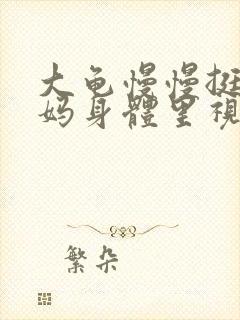 大龟慢慢挺
妈身體里視
繁朵